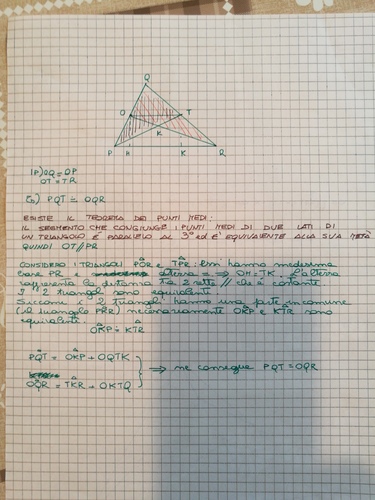 Q
O T
K
P H K R
IP) OQ = OP
QT = TR
TS) PQT ≐ OQR
ESISTE IL TEOREMA DEI PUNTI MEDI:
IL SEGMENTO CHE CONGIUNGE I PUNTI MEDI DI DUE LATI DI
UN TRIANGOLO È PARALLELO AL 3° ed È EQUIVALENTE ALLA SUA METÀ
QUINDI OT//PR
CONSIDERO I TRIANGOLI POR e TPR: Essi hanno medesima
base PR e altezza = ⇒ OH = TK. L'altezza
rappresenta la distanza tra 2 rette // che è costante
I 2 triangoli sono equivalenti
Siccome i 2 triangoli hanno una parte in comune
(il triangolo PKR) necessariamente OKP e KTR sono
equivalenti
OKP ≐ KTR
PQT = OKP + OQTK
OQR = TKR + OKTQ
⇒ ne consegue PQT = OQR